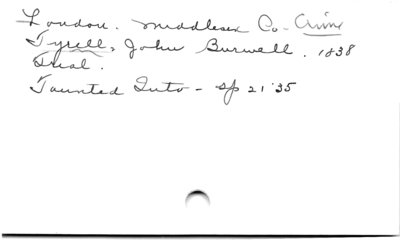 London. Middlesex Co - Crime
Tyrell, John Burwell. 1838
Trial.
Taunted Into - Sp 21 '35